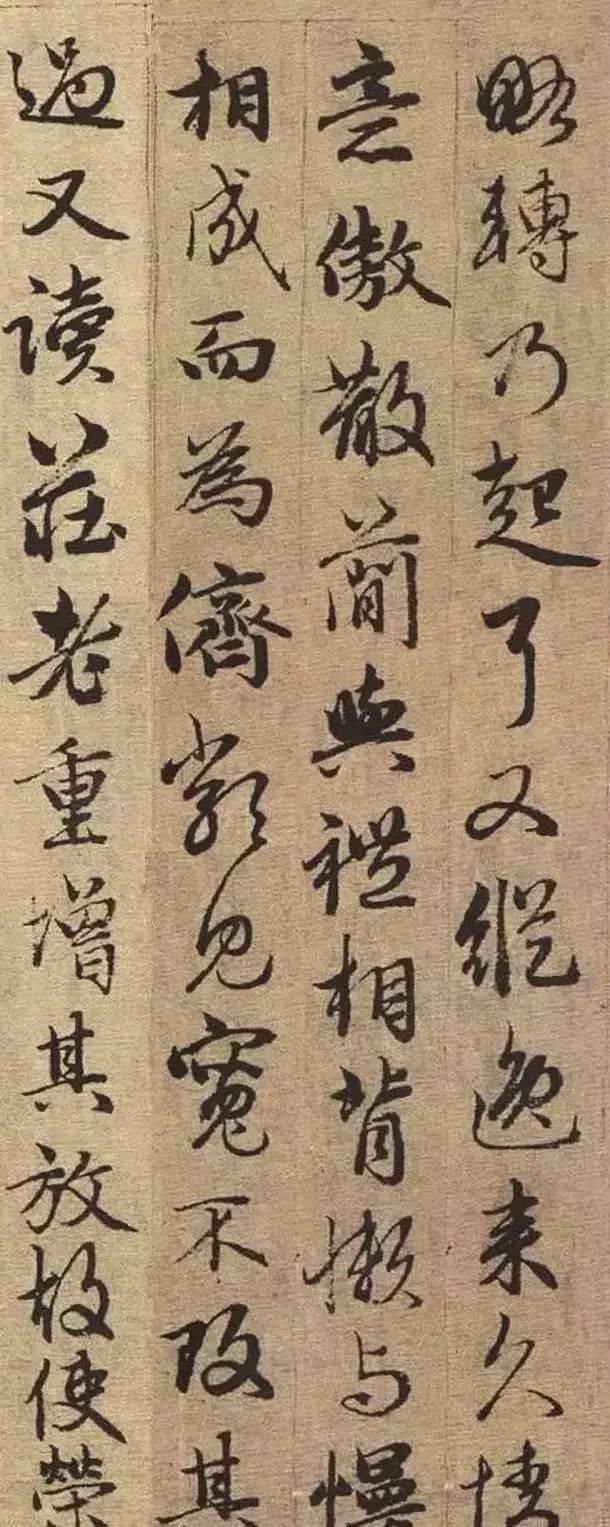 略轉乃起耳又縱逸来久情
意傲散簡與禮相背懶与慢
相成而為儕類見寬不攻其
過又讀莊老重增其放故使榮